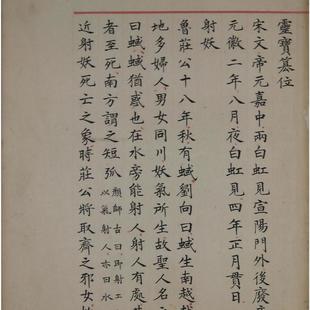 靈寶篡位
宋文帝元嘉中兩白虹見宣陽門外後廢帝
元徽二年八月夜白虹見四年正月貫日
射妖
魯莊公十八年秋有蜮劉向曰蜮生南越越
地多婦人男女同川妖氣所生故聖人名之
曰蜮蜮猶惑也在水旁能射人射人有處甚
者至死南方謂之短弧顏師古曰即射工以氣射人亦曰水
近射妖死亡之象時莊公將取齊之邪女